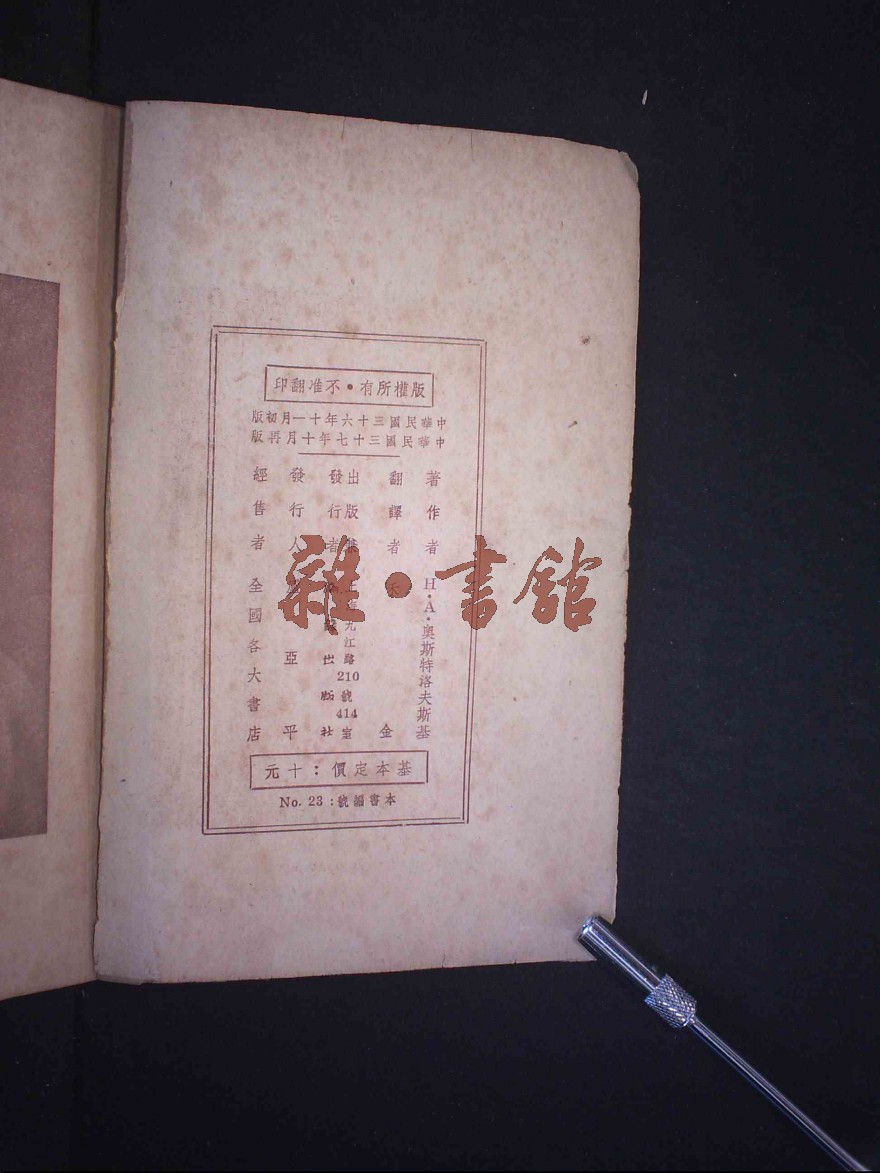 版權所有•不准翻印
中華民國三十六年十一月初版
中華民國三十七年十月再版
著作者 H·A·奧斯特洛夫斯基
翻譯者 金
出版
發行者 出版社
江路210號414室
發行人 亞平
經售者 全國各大書店
基本定價：十元
本書編號：No. 23
雜·書舘